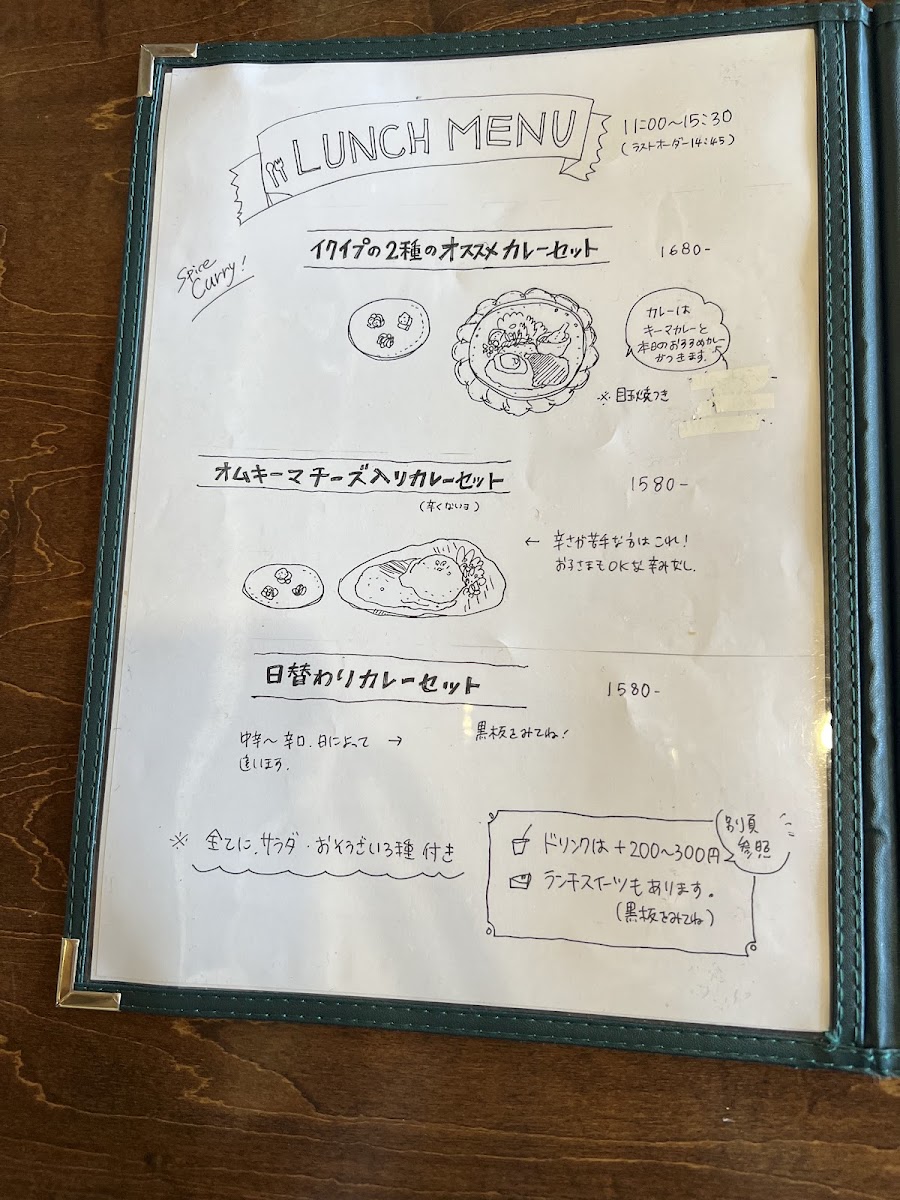 LUNCH MENU
11:00〜15:30
(ラストオーダー14:45)
Spice
Curry!
イクイプの2種のオススメカレーセット 1680-
カレーは
キーマカレーと
本日のおすすめカレー
がつきます。
※目玉焼つき
オムキーマチーズ入りカレーセット 1580-
(辛くないヨ)
← 辛さが苦手な方はこれ!
お子さまもOKな辛みなし.
日替わりカレーセット 1580-
中辛〜辛口.日によって →
違います.
黒板をみてね!
※ 全てに.サラダ・おそうざい3種付き
ドリンクは+200〜300円
別頁
参照
ランチスイーツもあります。
(黒板をみてね)